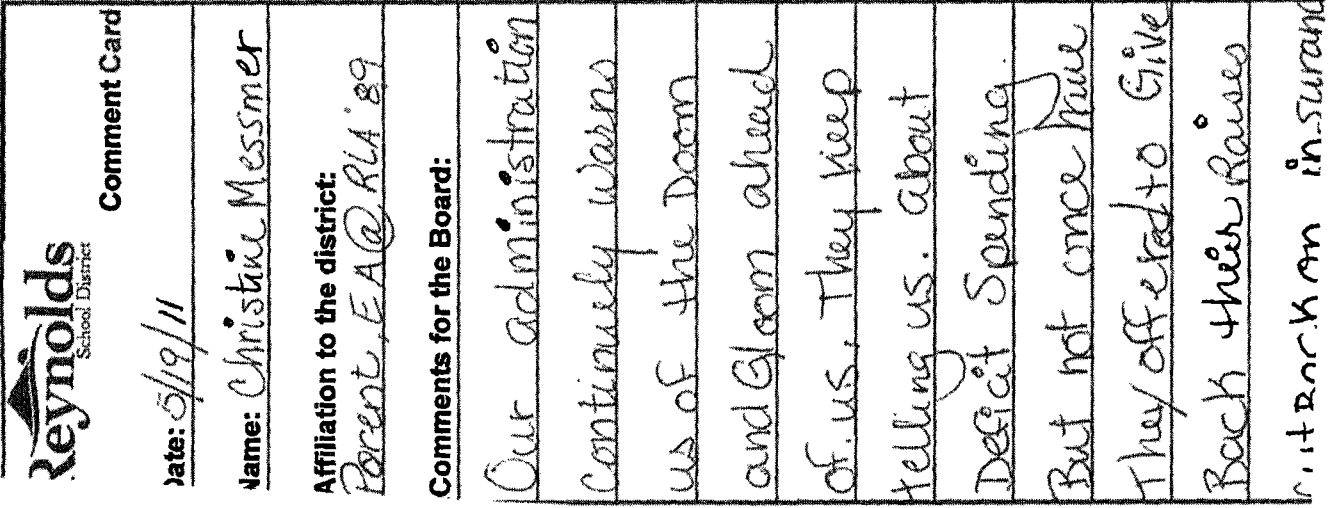 Reynolds
School District
Comment Card
Date: 5/19/11
Name: Christine Messmer
Affiliation to the district:
Parent, EA@RLA '89
Comments for the Board:
Our administration
Continuely warns
us of the Doom
and Gloom ahead
of us. They keep
telling us. about
Deficit Spending.
But not once have
They offered to Give
Back thier Raises
Cut Back on insurance